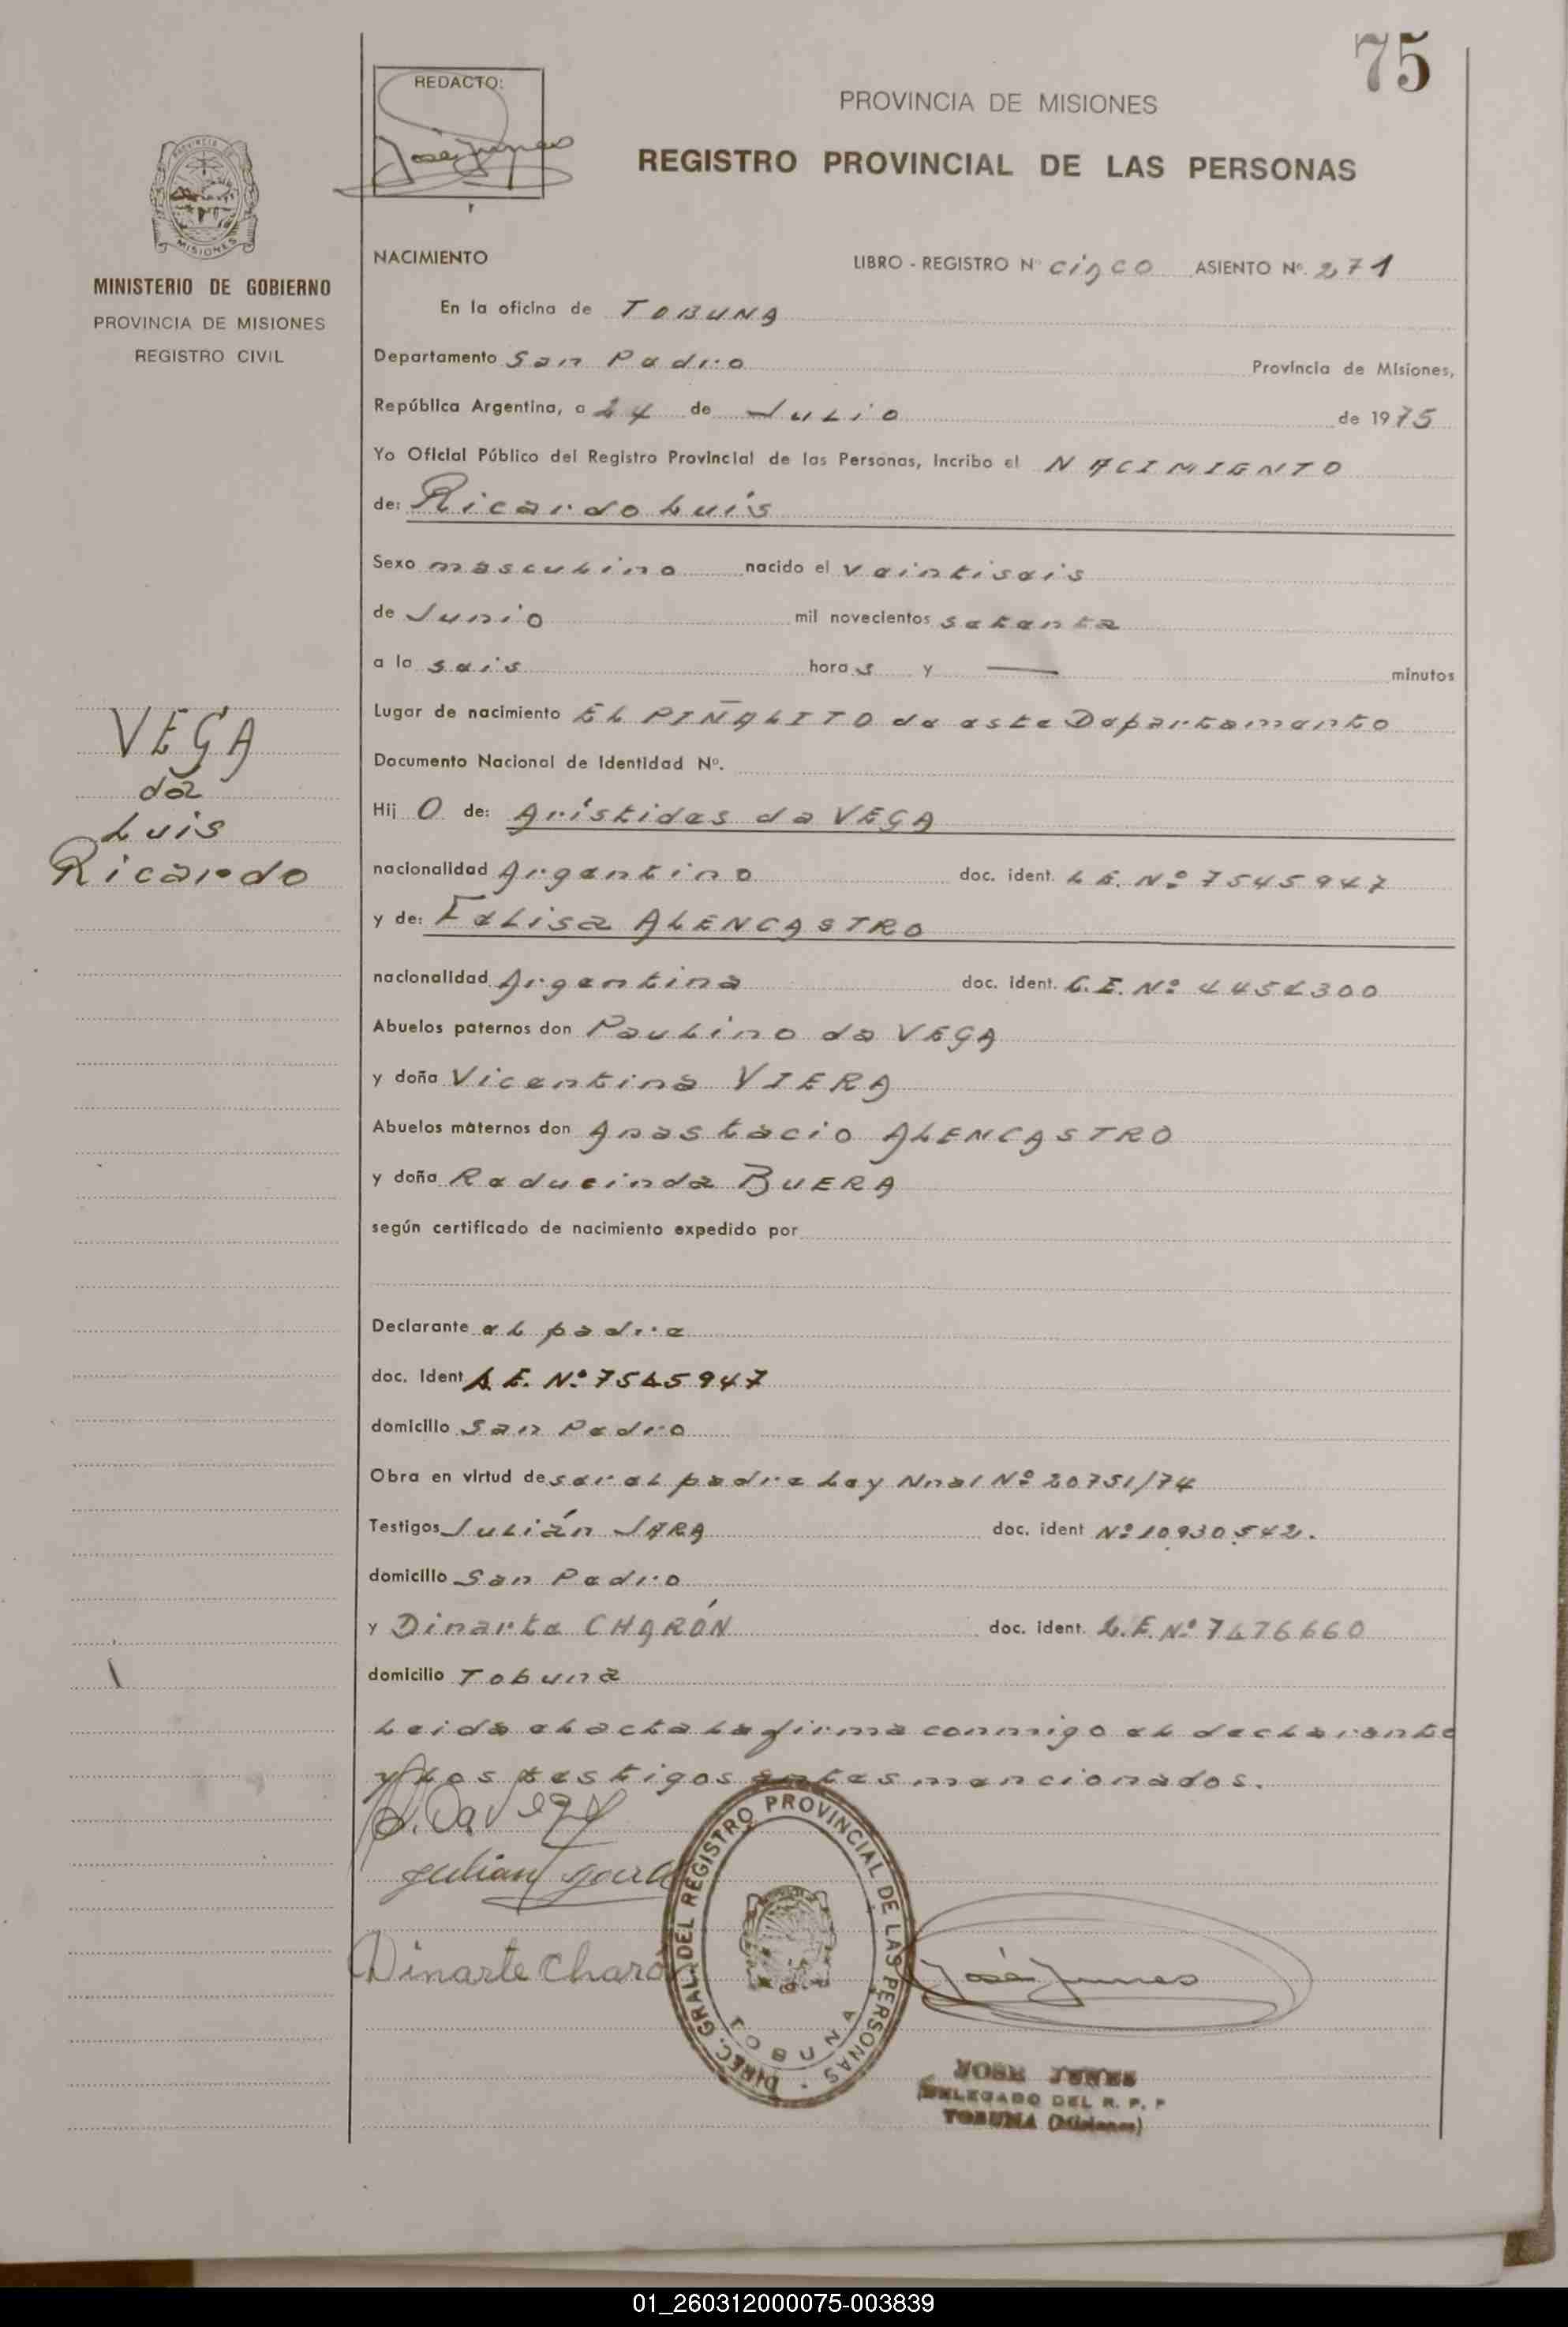 75
REDACTO:
PROVINCIA DE MISIONES
REGISTRO PROVINCIAL DE LAS PERSONAS
PROVINCIA DE
MISIONES
MINISTERIO DE GOBIERNO
PROVINCIA DE MISIONES
REGISTRO CIVIL
NACIMIENTO LIBRO - REGISTRO Nº cinco ASIENTO Nº 271
En la oficina de TOBUNA
Departamento San Pedro Provincia de Misiones,
República Argentina, a 24 de Julio de 1975
Yo Oficial Público del Registro Provincial de las Personas, Incribo el NACIMIENTO
de: Ricardo Luís
Sexo masculino nacido el veintiseis
de Junio mil novecientos setenta
a la seis horas y — minutos
Lugar de nacimiento EL PIÑALITO de este Departamento
Documento Nacional de Identidad Nº.
Hij O de: Arístides da VEGA
nacionalidad Argentino doc. ident. L.E. Nº 7545947
y de: Felisa ALENCASTRO
nacionalidad Argentina doc. ident. C.E. Nº 4454300
Abuelos paternos don Paulino da VEGA
y doña Vicentina VIERA
Abuelos maternos don Anastacio ALENCASTRO
y doña Reducinda BUERA
según certificado de nacimiento expedido por
Declarante el padre
doc. Ident L.E. Nº 7545947
domicilio San Pedro
Obra en virtud de ser el padre Ley Nnal Nº 20751/74
Testigos Julián JARA doc. ident Nº 10.930.542.
domicilio San Pedro
y Dinarte CHARÓN doc. ident. L.E. Nº 7476660
domicilio Tobuna
Leida el acta la firma conmigo el declarante
y los testigos antes mencionados.
VEGA
da
Luis
Ricardo
A. Da Vega
Julian Jara
Dinarte Charón
José Junes
DIREC. GRAL. DEL REGISTRO PROVINCIAL DE LAS PERSONAS
TOBUNA
JOSE JUNES
DELEGADO DEL R. P. P
TOBUNA (Misiones)
01_260312000075-003839